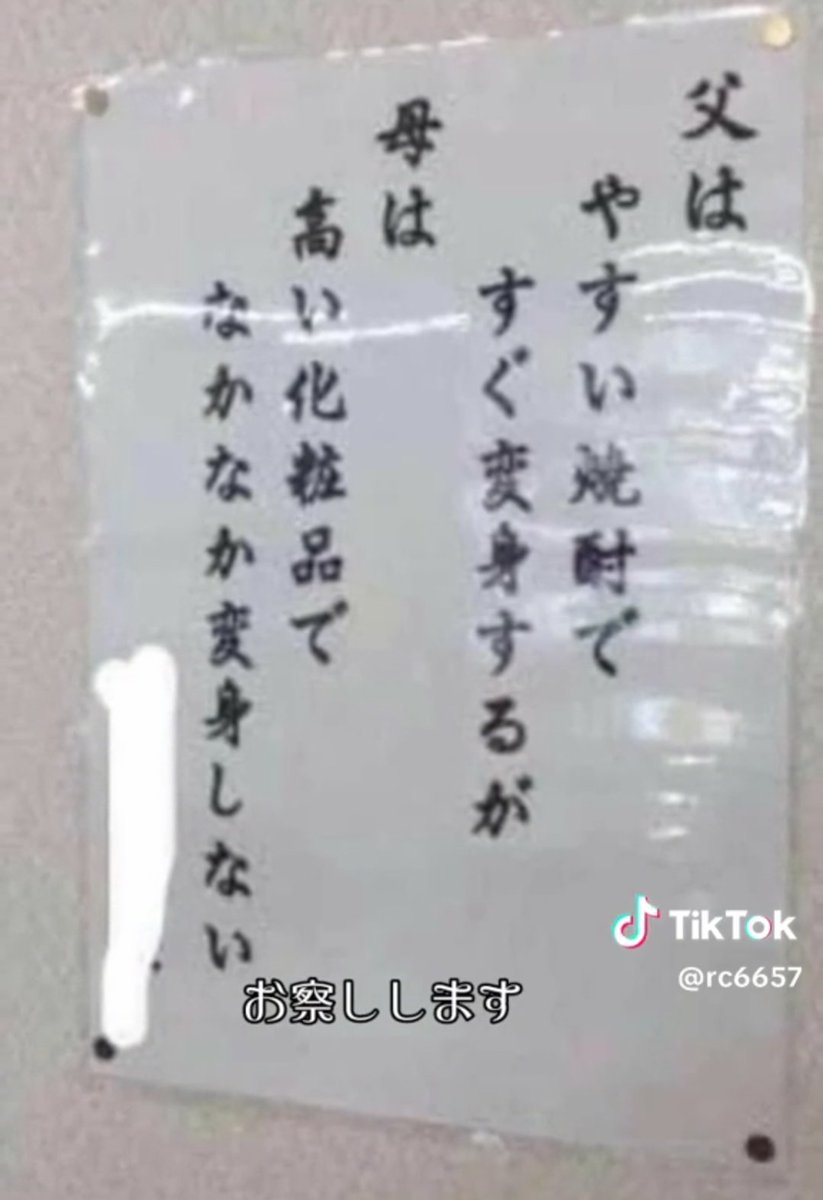 父は
やすい焼酎で
すぐ変身するが
母は
高い化粧品で
なかなか変身しない
お察しします
TikTok
@rc6657